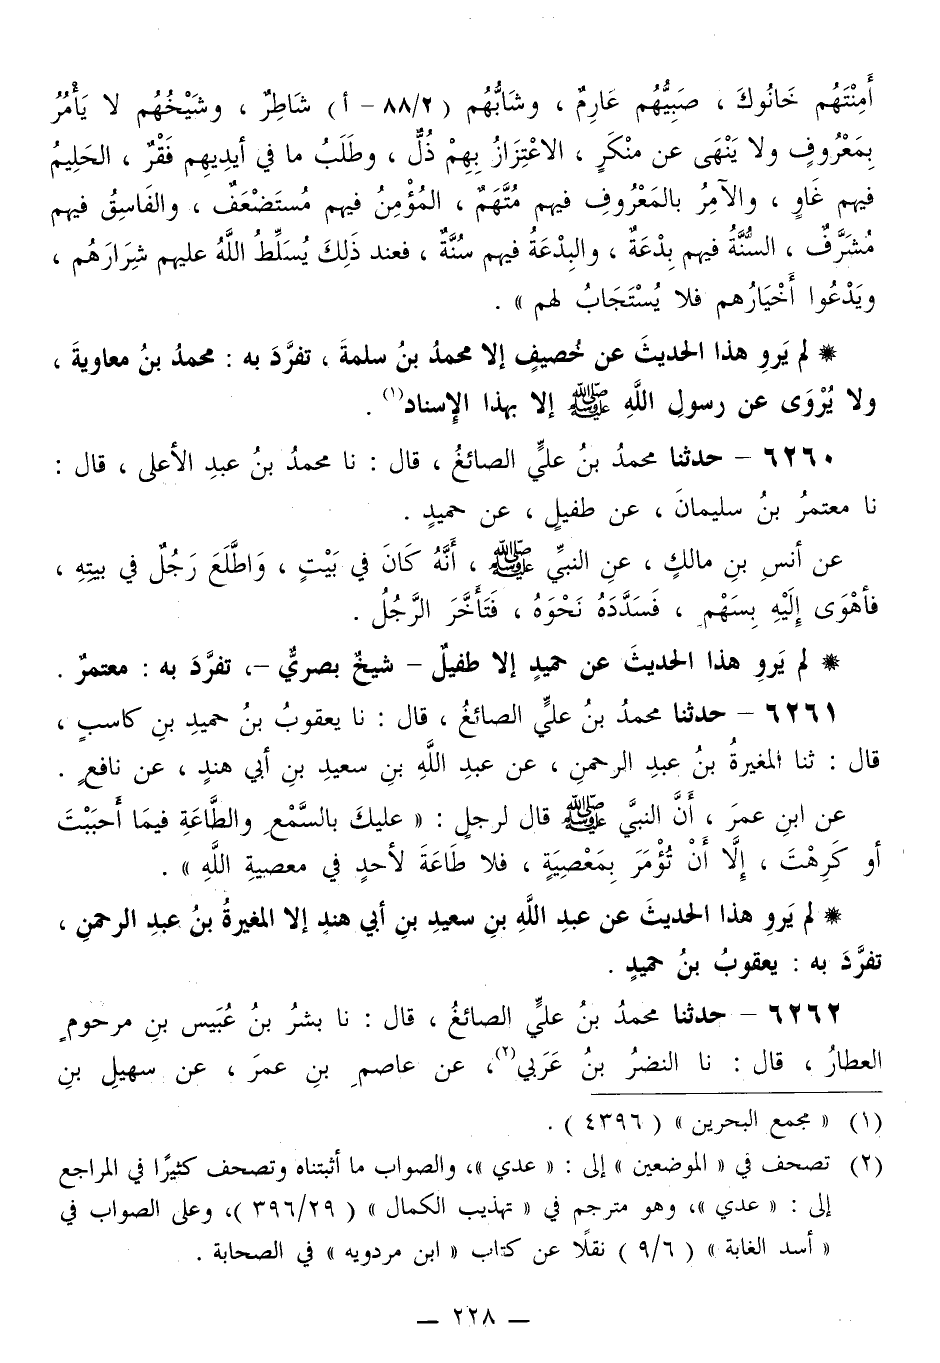 أَمِنْتَهُم خَانُوكَ ، صَبِيُّهُم عَارِمٌ ، وشَابُّهُم ( ٨٨/٢ – أ ) شَاطِرٌ ، وشَيْخُهُم لا يَأْمُرُ
بِمَعْرُوفٍ ولا يَنْهَى عن منْكَرٍ ، الاعْتِزَازُ بِهِمْ ذُلٌّ ، وطَلَبُ ما في أيدِيهِم فَقْرٌ ، الحَلِيمُ
فيهم غَاوٍ ، والآمِرُ بالمَعْرُوفِ فيهم مُتَّهَمٌ ، المُؤْمِنُ فيهم مُستَضْعَفٌ ، والفَاسِقُ فيهم
مُشَرَّفٌ ، السُّنَّةُ فيهم بِدْعَةٌ ، والبِدْعَةُ فيهم سُنَّةٌ ، فعند ذَلِكَ يُسَلِّطُ اللَّهُ عليهم شِرَارَهُم ،
ويَدْعُوا أَخْيَارُهم فلا يُسْتَجَابُ لهم » .
* لم يَروِ هذا الحديثَ عن خُصيفٍ إلا محمدُ بنُ سلمةَ ، تفرَّدَ به : محمدُ بنُ معاويةَ ،
ولا يُرْوَى عن رسولِ اللَّهِ ﷺ إلا بهذا الإِسناد(١) .
٦٢٦٠ – حدثنا محمدُ بنُ عليٍّ الصائغُ ، قال : نا محمدُ بنُ عبدِ الأعلى ، قال :
نا معتمرُ بنُ سليمانَ ، عن طفيلٍ ، عن حميدٍ .
عن أنسِ بنِ مالكٍ ، عنِ النبيِّ ﷺ ، أَنَّهُ كَانَ في بَيْتٍ ، وَاطَّلَعَ رَجُلٌ في بيتِهِ ،
فأهْوَى إِلَيْهِ بِسَهْمٍ ، فَسَدَّدَهُ نَحْوَهُ ، فَتَأَخَّرَ الرَّجُلُ .
* لم يَروِ هذا الحديثَ عن حميدٍ إلا طفيلٌ – شيخٌ بصريٌّ –، تفرَّدَ به : معتمرٌ .
٦٢٦١ – حدثنا محمدُ بنُ عليٍّ الصائغُ ، قال : نا يعقوبُ بنُ حميدِ بنِ كاسبٍ ،
قال : ثنا المغيرةُ بنُ عبدِ الرحمنِ ، عن عبدِ اللَّهِ بنِ سعيدِ بنِ أبي هندٍ ، عن نافعٍ .
عن ابنِ عمرَ ، أَنَّ النبيَّ ﷺ قال لرجلٍ : « عليكَ بالسَّمْعِ والطَّاعَةِ فيمَا أَحبَبْتَ
أو كَرِهْتَ ، إِلَّا أَنْ تُؤْمَرَ بِمَعْصِيَةٍ ، فلا طَاعَةَ لأحدٍ في معصيةِ اللَّهِ » .
* لم يَروِ هذا الحديثَ عن عبدِ اللَّهِ بنِ سعيدِ بنِ أبي هندٍ إلا المغيرةُ بنُ عبدِ الرحمنِ ،
تفرَّدَ به : يعقوبُ بنُ حميدٍ .
٦٢٦٢ – حدثنا محمدُ بنُ عليٍّ الصائغُ ، قال : نا بشرُ بنُ عُبَيس بنِ مرحومٍ
العطارُ ، قال : نا النضرُ بنُ عَرَبي(٢)، عن عاصمِ بنِ عمرَ ، عن سهيلِ بنِ
(١) « مجمع البحرين » ( ٤٣٩٦ ) .
(٢) تصحف في « الموضعين » إلى : « عدي »، والصواب ما أثبتناه وتصحف كثيرًا في المراجع
إلى : « عدي »، وهو مترجم في « تهذيب الكمال » ( ٣٩٦/٢٩ )، وعلى الصواب في
« أسد الغابة » ( ٩/٦ ) نقلًا عن كتاب « ابن مردويه » في الصحابة .
— ٢٢٨ —